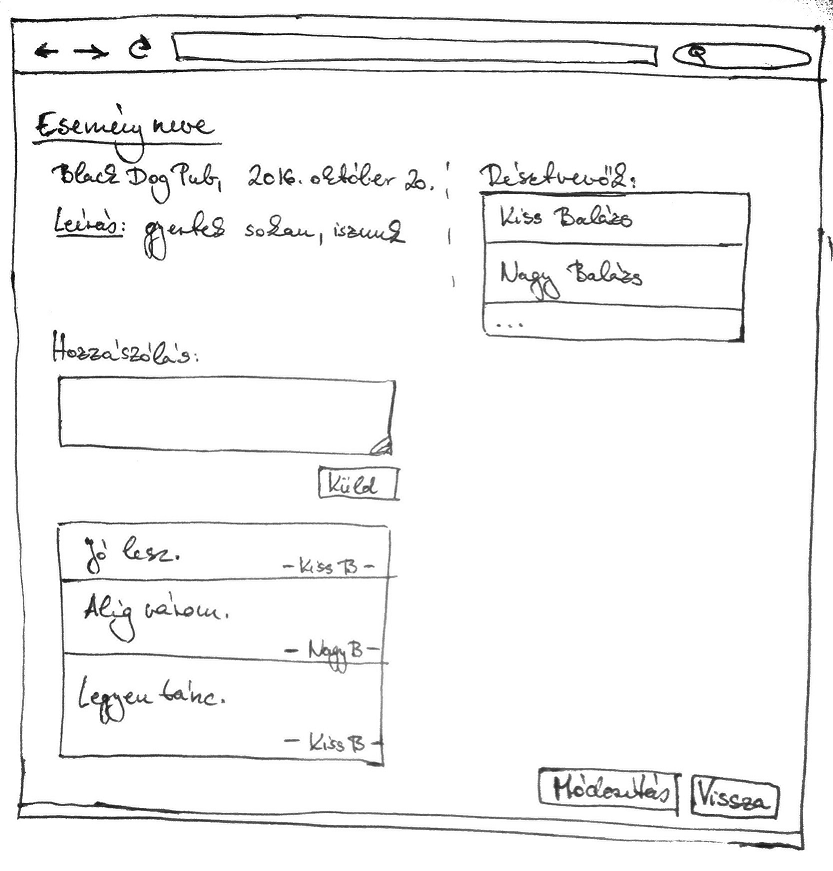 Esemény neve
Black Dog Pub, 2016. október 20.
Leírás: gyertek sokan, iszunk
Résztvevők:
Kiss Balázs
Nagy Balázs
...
Hozzászólás:
Küld
Jó lesz.
- Kiss B -
Alig várom.
- Nagy B -
Legyen tánc.
- Kiss B -
Módosítás
Vissza